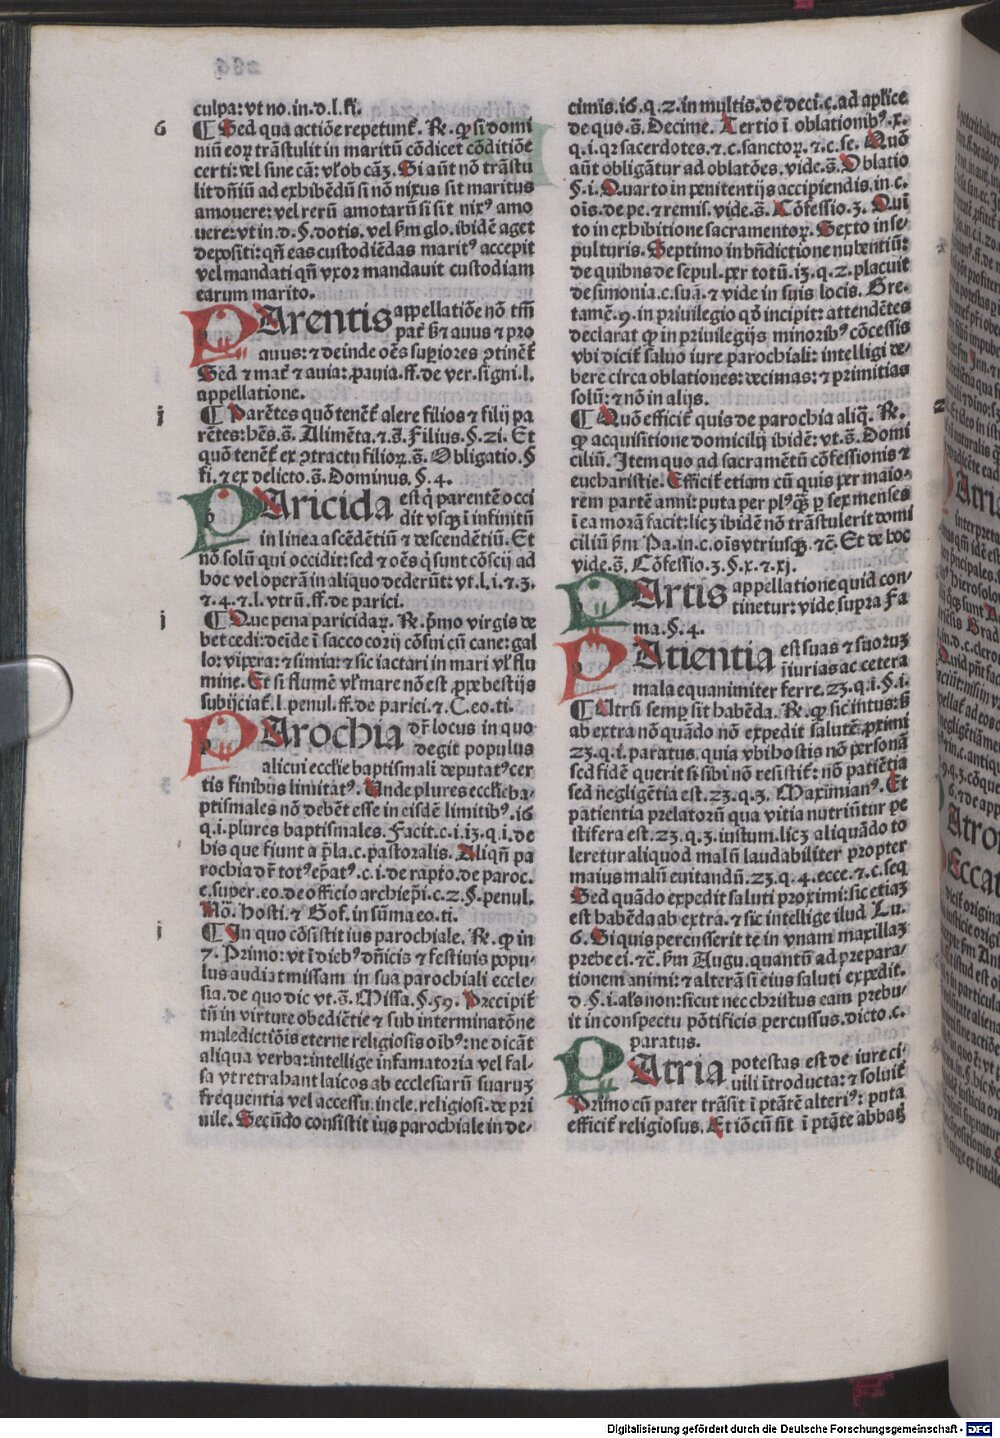 culpa: vt no. in. d. l. fi.
6
¶ Sed qua actiõe repetunt᷑. Re. ꝙ si domi
niũ eoꝝ trãstulit in maritũ cõdicet cõditiõe
certi: vel sine cã: vl' ob cãʒ. Si aũt nõ trãstu
lit dñiũ ad exhibẽdũ si nõ nixus sit maritus
amouere: vel rerũ amotarũ si sit nixꝰ amo
uere: vt in. d. §. dotis. vel ẜm glo. ibidẽ aget
depositi: qñ eas custodiẽdas maritꝰ accepit
vel mandati qñ vxor mandauit custodiam
earum marito.
PArentis appellatiõe nõ tm̃
pat᷑ ß ⁊ auus ⁊ pro
auus: ⁊ deinde oẽs supiores ꝯtinẽt᷑
Sed ⁊ mat᷑ ⁊ auia: ꝓauia. ff. de ver. signi. l.
appellatione.
i
¶ Parẽtes quõ tenẽt᷑ alere filios ⁊ filij pa
rẽtes: hẽs. s̃. Alimẽta. ⁊. s̃. Filius. §. 21. Et
quõ tenẽt᷑ ex ꝯtractu filioꝝ. s̃. Obligatio. §
fi. ⁊ ex delicto. s̃. Dominus. §. 4.
PAricida est q̃ parentẽ occi
dit vsqʒ ĩ infinitũ
in linea ascẽdẽtiũ ⁊ descendẽtiũ. Et
nõ solũ qui occidit: sed ⁊ oẽs q̃ sunt cõscij ad
hoc vel operã in aliquo dederũt: vt. l. i. ⁊. 3.
⁊. 4. ⁊. l. vtrũ. ff. de parici.
i
¶ Que pena paricidaꝝ. Re. p̃mo virgis de
bet cedi: deĩde ĩ sacco corij cõsui cũ cane: gal
lo: vipera: ⁊ simia: ⁊ sic iactari in mari vl' flu
mine. Et si flumẽ vl' mare nõ est ꝓpe bestijs
subijciat᷑. l. penul. ff. de parici. ⁊. C. eo. ti.
PArochia dr̃ locus in quo
degit populus
alicui eccl'ie baptismali deputatꝰ cer
tis finibus limitatꝰ. Unde plures eccl'ie ba-
ptismales nõ debẽt esse in eisdẽ limitibꝰ. 16
q. i. plures baptismales. Facit. c. i. 13. q. i. de
his que fiunt a p̃la. c. pastoralis. Aliqñ pa
rochia dr̃ totꝰ ep̃atꝰ. c. i. de rapto. de paroc.
c. super. eo. de officio archiep̃i. c. 2. §. penul.
Nõ. Hosti. ⁊ Gof. in sũma eo. ti.
i
¶ In quo cõsistit ius parochiale. Re. ꝙ in
7. Primo: vt ĩ diebꝰ dñicis ⁊ festiuis popu-
lus audiat missam in sua parochiali eccle-
sia. de quo dic vt. s̃. Missa. §. 59. Precipit᷑
tñ in virtute obediẽtie ⁊ sub interminatõne
maledictiõis eterne religiosis oĩbꝰ: ne dicãt
aliqua verba: intellige infamatoria vel fal-
sa vt retrahant laicos ab ecclesiarũ suaruʒ
frequentia vel accessu. in cle. religiosi. de pri
uile. Secũdo consistit ius parochiale in de-
cimis. 16. q. 2. in multis. de deci. c. ad apl'ice
de quo. s̃. Decime. Tertio ĩ oblationibꝰ. x.
q. i. qꝛ sacerdotes. ⁊. c. sanctoꝝ. ⁊. c. se. Quõ
aũt obligãtur ad oblatões. vide. s̃. Oblatio
§. i. Quarto in penitentijs accipiendis. in. c.
oĩs. de pe. ⁊ remis. vide. s̃. Cõfessio. 3. Qui
to in exhibitione sacramentoꝝ. Sexto in se-
pulturis. Septimo in bñdictione nubentiũ:
de quibus de sepul. per totũ. 13. q. 2. placuit
de simonia. c. suã. ⁊ vide in suis locis. Gre.
tamẽ. 9. in priuilegio qđ incipit: attendẽtes
declarat ꝙ in priuilegijs minoribꝰ cõcessis
vbi dicit᷑ saluo iure parochiali: intelligi de-
bere circa oblationes: decimas: ⁊ primitias
solũ: ⁊ nõ in alijs.
¶ Quõ efficit᷑ quis de parochia aliq̃. Re.
ꝙ acquisitione domicilij ibidẽ: vt. s̃. Domi
ciliũ. Item quo ad sacramẽtũ cõfessionis ⁊
eucharistie. Efficit᷑ etiam cũ quis per maio-
rem partẽ anni: puta per plꝰqʒ̃ ꝑ sex menses
ĩ ea morã facit: licʒ ibidẽ nõ trãstulerit domi
ciliũ ẜm Pa. in. c. oĩs vtriusqʒ. ⁊c̃. Et de hoc
vide. s̃. Cõfessio. 3. §. x. ⁊. xj.
PArtis appellatione quid con-
tinetur: vide supra Fa
ma. §. 4.
PAtientia est suas ⁊ suoruʒ
iniurias ac cetera
mala equanimiter ferre. 23. q. i. §. i.
¶ Utrũ semꝑ sit habẽda. Re. ꝙ sic intus: ß
ab extra nõ quãdo nõ expedit salutẽ ꝓximi
23. q. i. paratus. quia vbi hostis nõ personã
sed fidẽ querit si sibi nõ resistit᷑: nõ patiẽtia
sed negligẽtia est. 23. q. 3. Maximianꝰ. Et
patientia prelatorũ qua vitia nutriũtur pe
stifera est. 23. q. 3. iustum. licʒ aliquãdo to
leretur aliquod malũ laudabiliter propter
maius malũ euitandũ. 23. q. 4. ecce. ⁊. c. seq
Sed quãdo expedit saluti proximi: sic etiaʒ
est habẽda ab extra. ⁊ sic intellige illud Lu.
6. Si quis percusserit te in vnam maxillaʒ
prebe ei. ⁊c̃. ẜm Augu. quantũ ad prepara-
tionem animi: ⁊ alterã si eius saluti expedit.
d. §. i. al's non: sicut nec christus eam prebu-
it in conspectu põtificis percussus. dicto. c.
paratus.
PAtria potestas est de iure ci-
uili ĩtroducta: ⁊ soluit᷑
Primo cũ pater trãsit ĩ ptãtẽ alteriꝰ: puta
efficit᷑ religiosus. Et iõ cũ sit ĩ ptãte abbatʒ
Digitalisierung gefördert durch die Deutsche Forschungsgemeinschaft - DFG